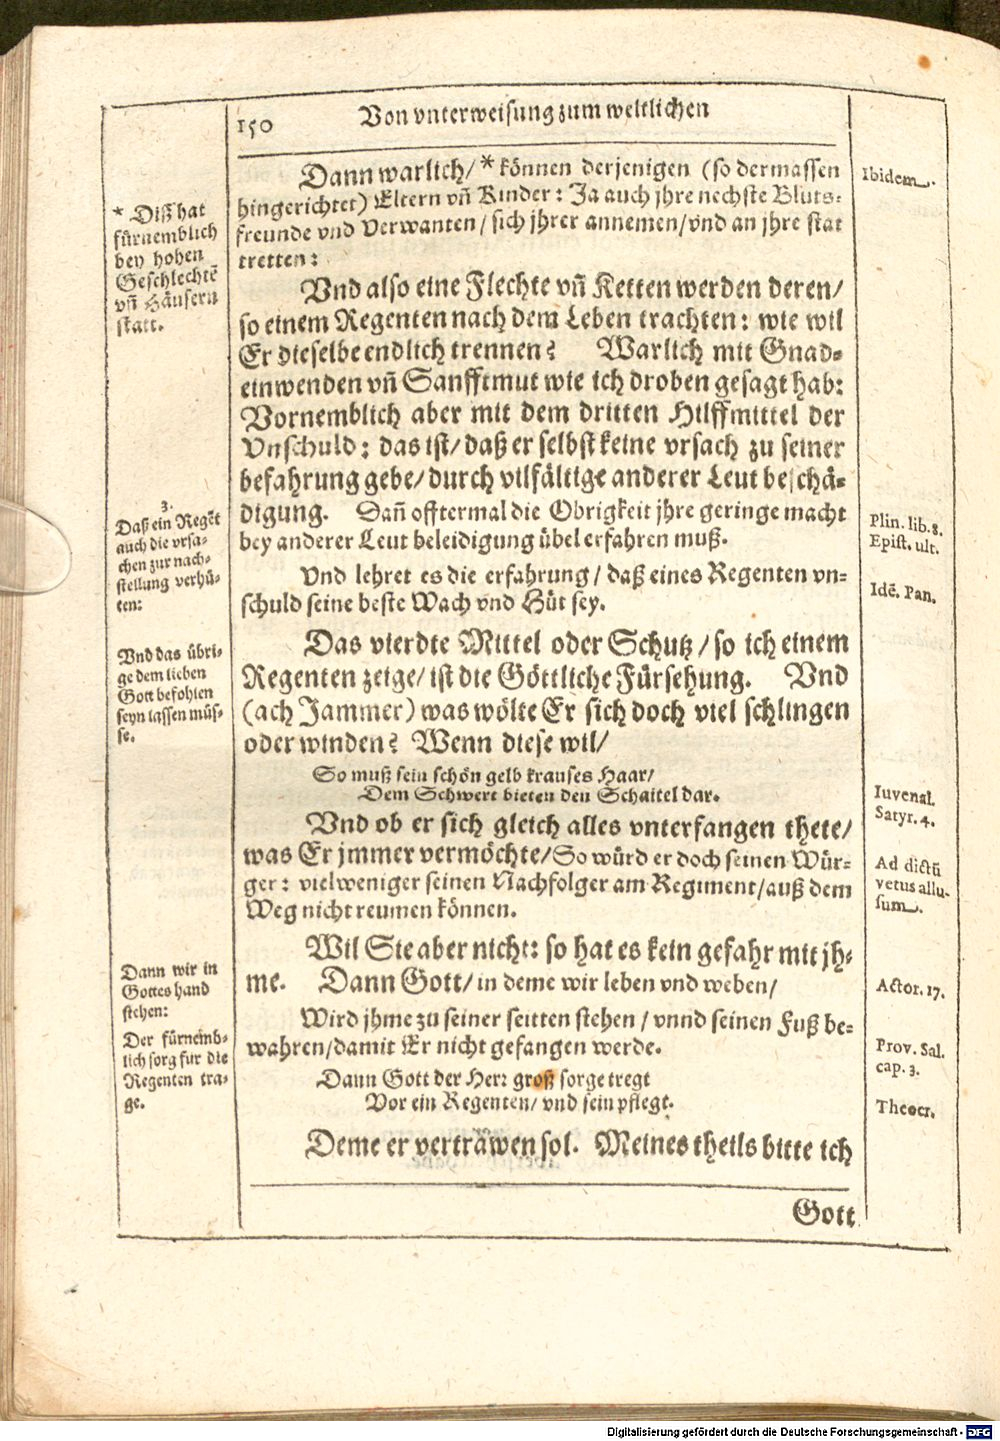 150
Von vnterweisung zum weltlichen
Dann warlich/* können derjenigen (so dermassen
hingerichtet) Eltern vñ Kinder: Ja auch jhre nechste Bluts-
freunde vnd Verwanten/ sich jhrer annemen/vnd an jhre stat
tretten:
Ibidem.
* Diß hat
fürnemblich
bey hohen
Geschlechtẽ
vñ Häusern
statt.
Vnd also eine Flechte vñ Ketten werden deren/
so einem Regenten nach dem Leben trachten: wie wil
Er dieselbe endlich trennen? Warlich mit Gnad-
einwenden vñ Sanfftmut wie ich droben gesagt hab:
Vornemblich aber mit dem dritten Hilffmittel der
Vnschuld: das ist/ daß er selbst keine vrsach zu seiner
befahrung gebe/ durch vilfältige anderer Leut beschä-
digung. Dañ offtermal die Obrigkeit jhre geringe macht
bey anderer Leut beleidigung übel erfahren muß.
3.
Daß ein Regẽt
auch die vrsa-
chen zur nach-
stellung verhü-
ten:
Plin. lib. 8.
Epist. ult.
Vnd lehret es die erfahrung/ daß eines Regenten vn-
schuld seine beste Wach vnd Hüt sey.
Idẽ. Pan.
Das vierdte Mittel oder Schutz/ so ich einem
Regenten zeige/ ist die Göttliche Fürsehung. Vnd
(ach Jammer) was wölte Er sich doch viel schlingen
oder winden? Wenn diese wil/
Vnd das übri-
ge dem lieben
Gott befohlen
seyn lassen müs-
se.
So muß sein schön gelb krauses Haar/
Dem Schwert bieten den Schaitel dar.
Iuvenal.
Satyr. 4.
Vnd ob er sich gleich alles vnterfangen thete/
was Er jmmer vermöchte/ So würd er doch seinen Wür-
ger: vielweniger seinen Nachfolger am Regiment/auß dem
Weg nicht reumen können.
Ad dictũ
vetus allu-
sum.
Wil Sie aber nicht: so hat es kein gefahr mit jh-
me. Dann Gott/ in deme wir leben vnd weben/
Dann wir in
Gottes hand
stehen:
Actor. 17.
Wird jhme zu seiner seitten stehen/ vnnd seinen Fuß be-
wahren/damit Er nicht gefangen werde.
Der fürnemb-
lich sorg für die
Regenten tra-
ge.
Prov. Sal.
cap. 3.
Dann Gott der Herr groß sorge tregt
Vor ein Regenten/ vnd sein pflegt.
Theocr.
Deme er verträwen sol. Meines theils bitte ich
Gott
Digitalisierung gefördert durch die Deutsche Forschungsgemeinschaft - DFG